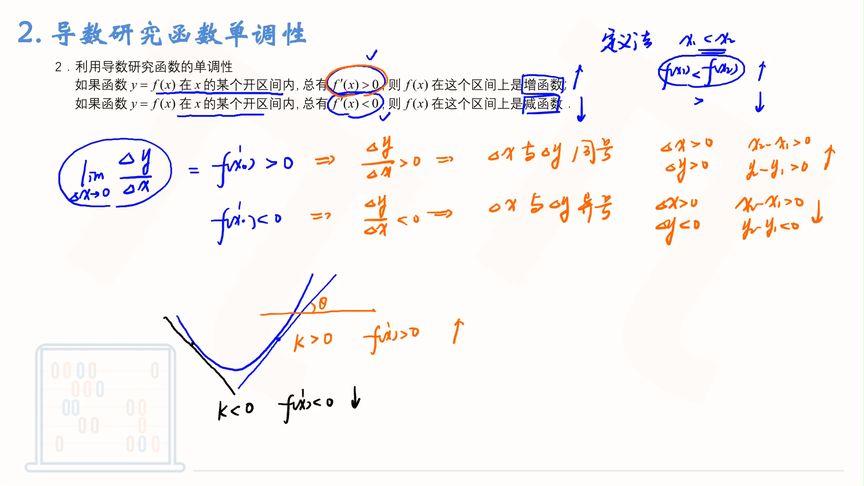 2. 导数研究函数单调性
定义法 x₁ < x₂
2．利用导数研究函数的单调性
如果函数 y = f (x) 在 x 的某个开区间内, 总有 f ′(x) > 0, 则 f (x) 在这个区间上是增函数; ↑ f(x₁) < f(x₂) ↑
如果函数 y = f (x) 在 x 的某个开区间内, 总有 f ′(x) < 0, 则 f (x) 在这个区间上是减函数． ↓ > ↓
lim Δx→0 Δy/Δx = f′(x₀) > 0 ⇒ Δy/Δx > 0 ⇒ Δx与Δy同号 Δx>0 Δy>0 x₂-x₁>0 y₂-y₁>0 ↑
f′(x₀) < 0 ⇒ Δy/Δx < 0 ⇒ Δx与Δy异号 Δx>0 Δy<0 x₂-x₁>0 y₂-y₁<0 ↓
θ
k>0 f′(x)>0 ↑
k<0 f′(x)<0 ↓